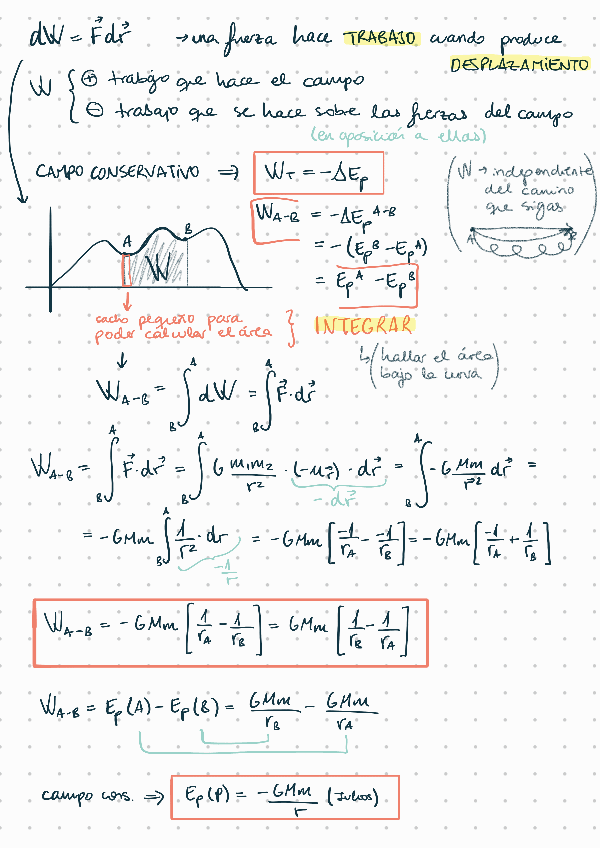 dW = F⃗ dr⃗ → una fuerza hace TRABAJO cuando produce
DESPLAZAMIENTO
W { ⊕ trabajo que hace el campo
⊖ trabajo que se hace sobre las fuerzas del campo
(en oposición a ellas)
CAMPO CONSERVATIVO ⇒ W_T = -ΔEp
(W → independiente
del camino
que sigas)
A B
W_A-B = -ΔEp^A-B
= -(Ep^B - Ep^A)
= Ep^A - Ep^B
A B
W
cacho pequeño para
poder calcular el área } INTEGRAR
↳ (hallar el área
bajo la curva)
W_A-B = ∫_B^A dW = ∫_B^A F⃗ · dr⃗
W_A-B = ∫_B^A F⃗ · dr⃗ = ∫_B^A G m₁m₂/r² · (-u⃗r) · dr⃗ = ∫_B^A -G Mm/r⃗² dr⃗ =
-dr⃗
= -GMm ∫_B^A 1/r² · dr = -GMm [-1/rA - -1/rB] = -GMm [-1/rA + 1/rB]
-1/r
W_A-B = -GMm [1/rA - 1/rB] = GMm [1/rB - 1/rA]
W_A-B = Ep(A) - Ep(B) = GMm/rB - GMm/rA
campo cons. ⇒ Ep(P) = -GMm/r (Julios)